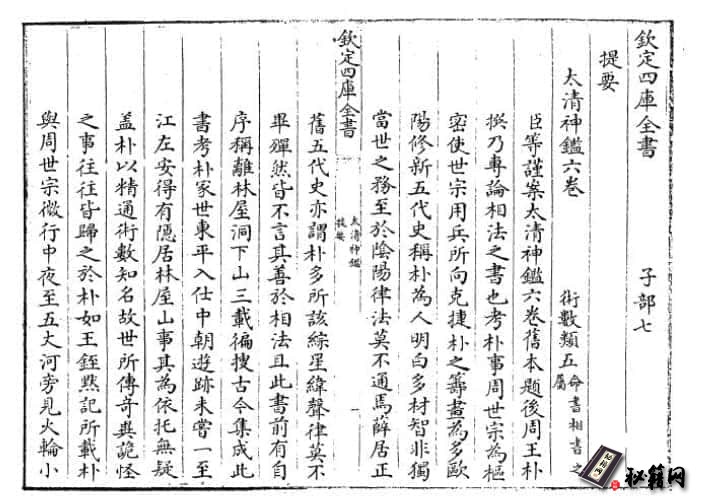 欽定四庫全書 子部七
提要
太清神鑑六卷 術數類五命書相書之屬
臣等謹案太清神鑑六卷舊本題後周王朴
撰乃專論相法之書也考朴事周世宗為樞
密使世宗用兵所向克捷朴之籌畫為多歐
陽修新五代史稱朴為人明白多材智非獨
當世之務至於陰陽律法莫不通焉薛居正
欽定四庫全書
太清神鑑
提要
一
舊五代史亦謂朴多所該綜星緯聲律莫不
畢殫然皆不言其善於相法且此書前有自
序稱離林屋洞下山三載徧搜古今集成此
書考朴家世東平入仕中朝遊跡未嘗一至
江左安得有隠居林屋山事其為依托無疑
盖朴以精通術數知名故世所傳奇異詭怪
之事往往皆歸之於朴如王銍黙記所載朴
與周世宗微行中夜至五丈河旁見火輪小
秘籍网